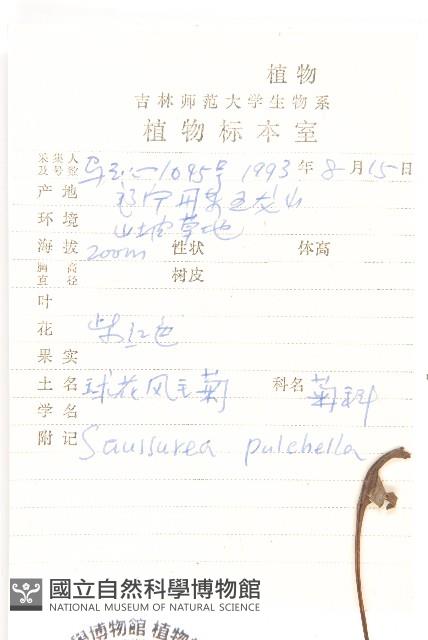 植物
吉林师范大学生物系
植物标本室
采集人及号数 1095号 1993年8月15日
产地 辽宁开原玉龙山
环境 山坡草地
海拔 200m 性状 体高
胸高直径 树皮
叶
花 紫红色
果实
土名 球花风毛菊 科名 菊科
学名
附记 Saussurea pulchella
國立自然科學博物館
NATIONAL MUSEUM OF NATURAL SCIENCE
學博物館 植物